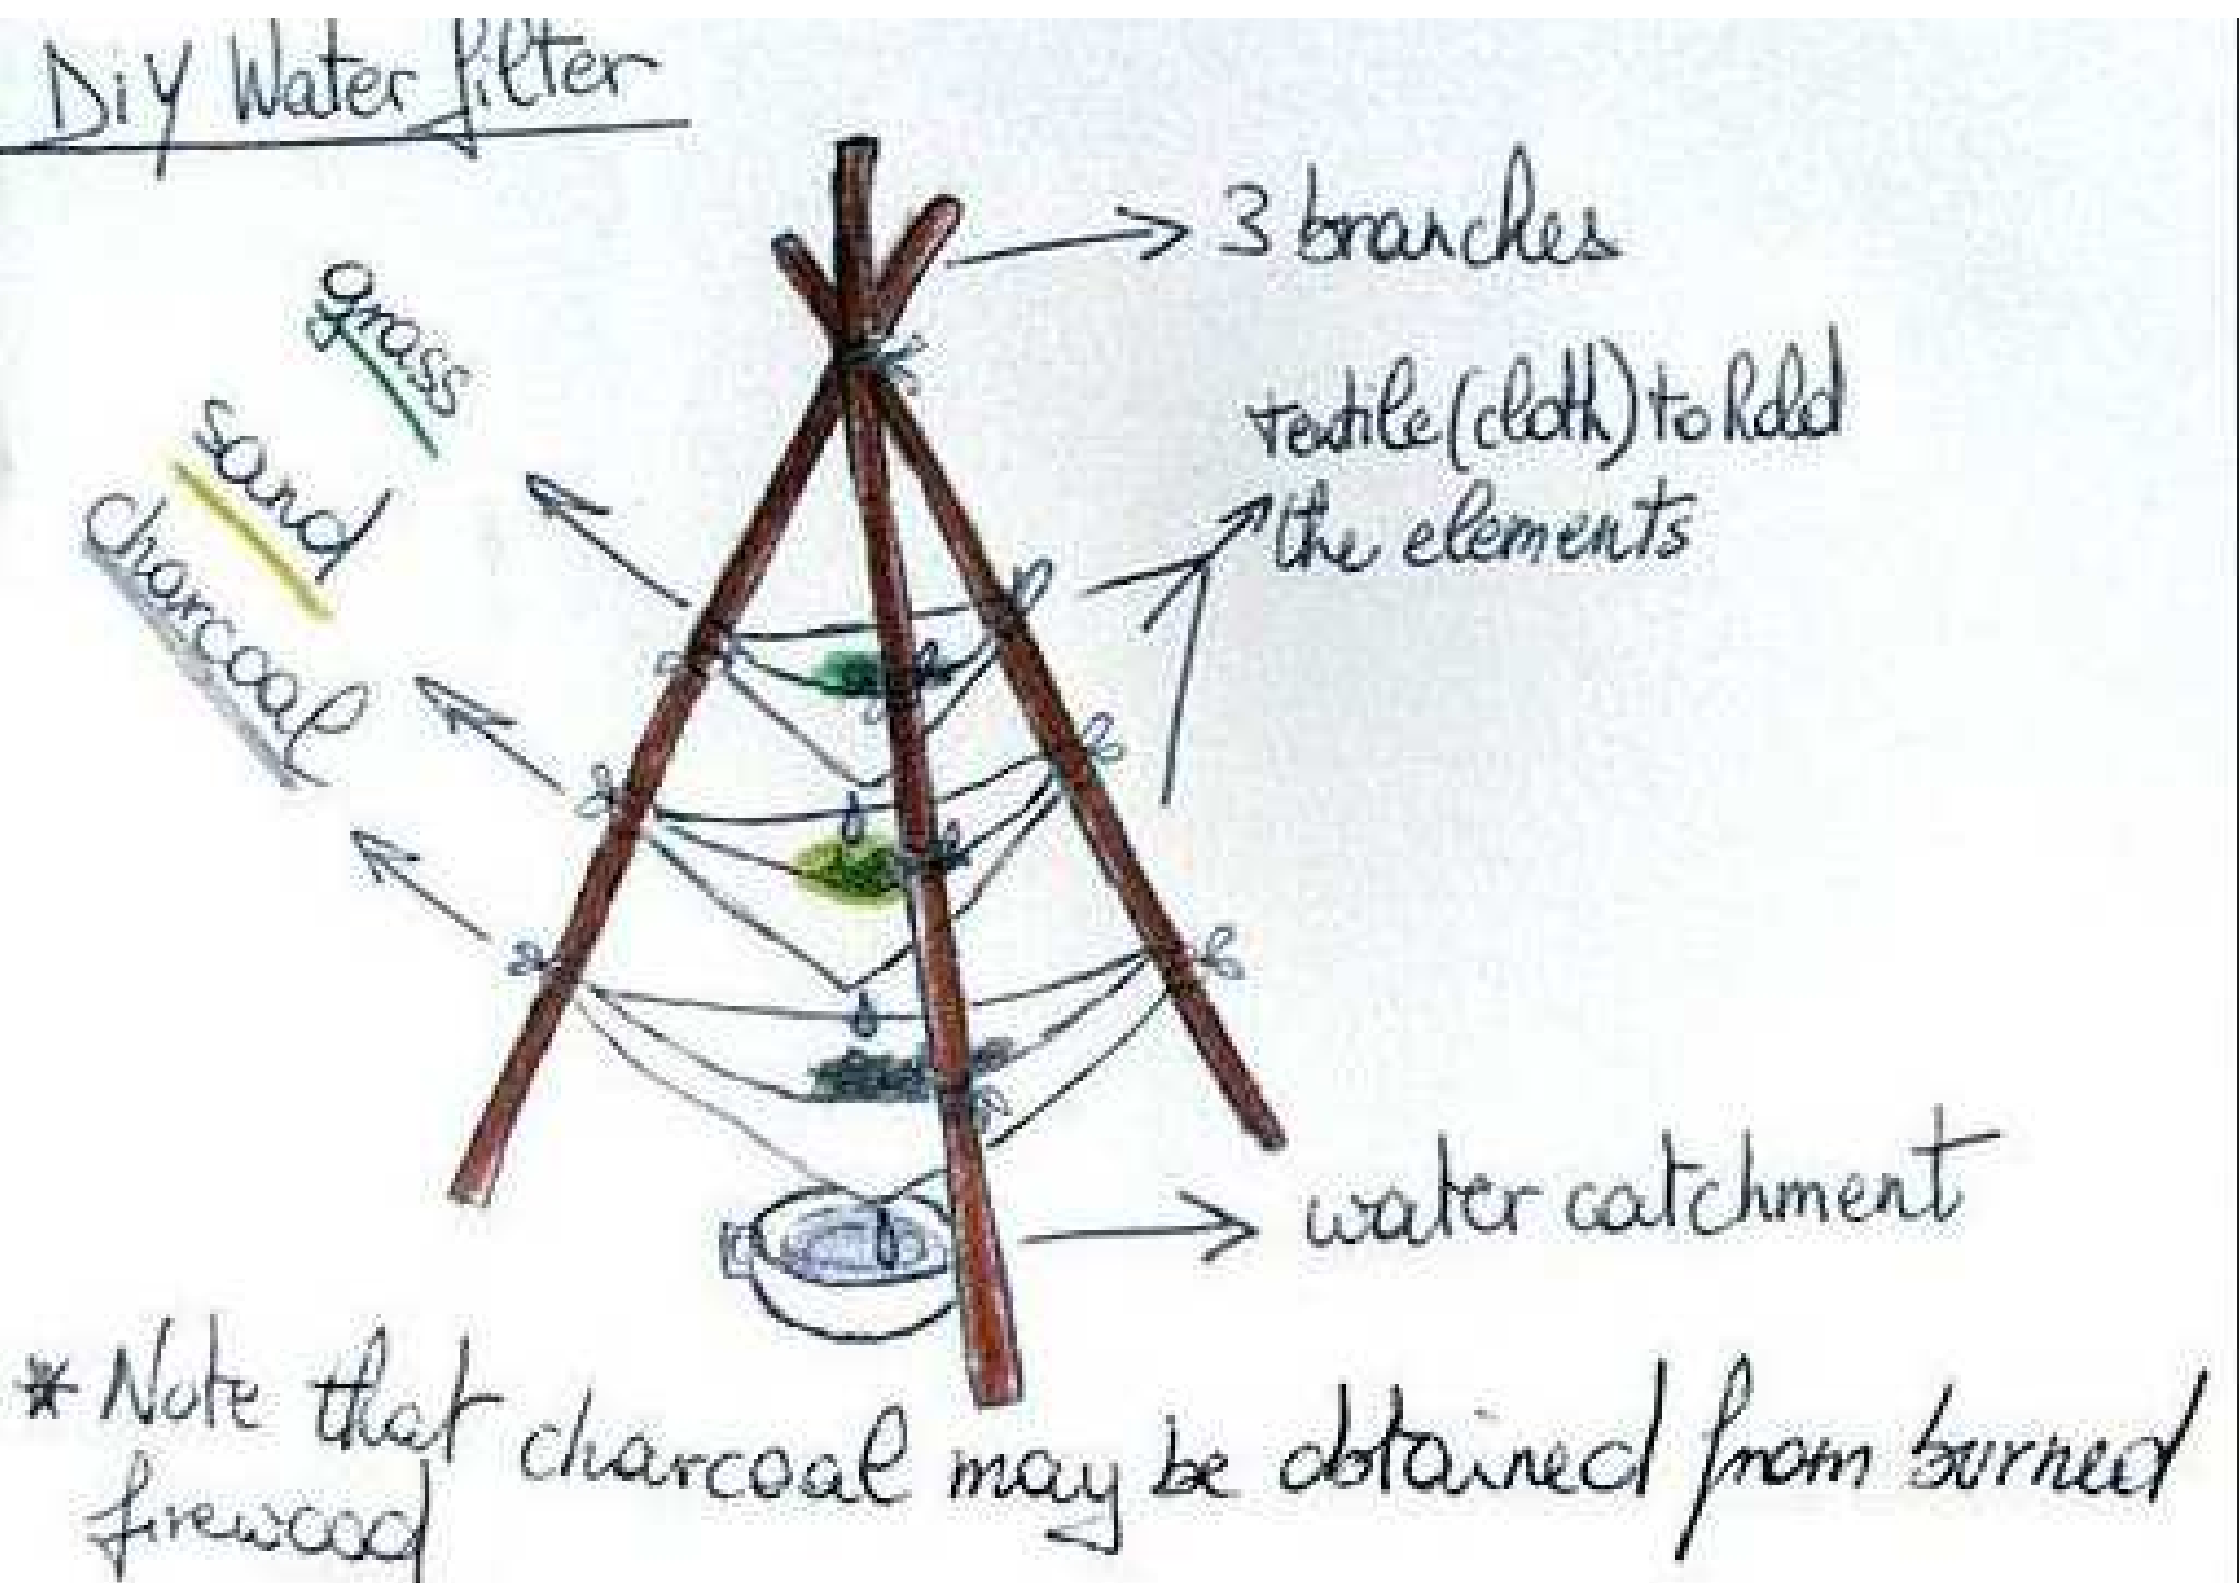 DiY Water filter
3 branches
grass
sand
charcoal
textile (cloth) to hold
the elements
water catchment
* Note that charcoal may be obtained from burned
firewood